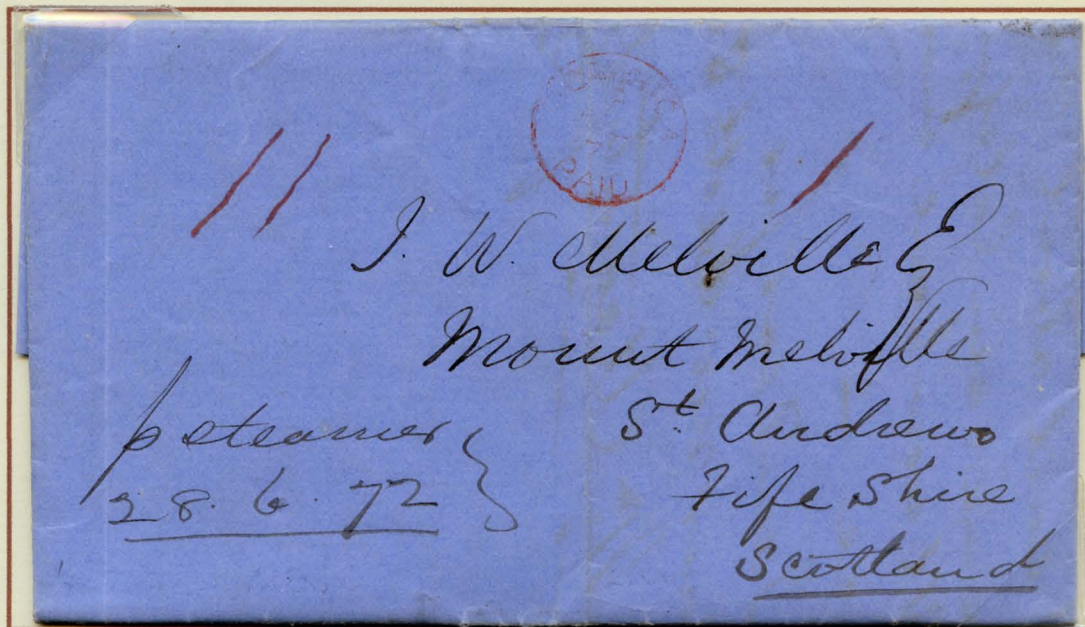 PAID
J. W. Melville Esq
Mount Melville
St. Andrews
Fife Shire
Scotland
p steamer
28. 6. 72